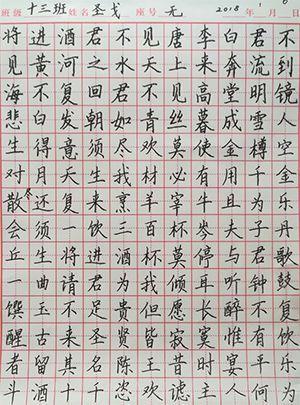 班级 十三班 姓名 圣戈 座号 无 2018年 月 日
将进酒君不见唐李白君不
见黄河之水天上来奔流到
海不复回君不见高堂明镜
悲白发朝如青丝暮成雪人
生得意须尽欢莫使金樽空
对月天生我材必有用千金
散尽还复来烹羊宰牛且为乐
会须一饮三百杯岑夫子丹
丘生将进酒杯莫停与君歌
一曲请君为我倾耳听钟鼓
馔玉不足贵但愿长醉不复
醒古来圣贤皆寂寞惟有饮
者留其名陈王昔时宴平乐
斗酒十千恣欢谑主人何为